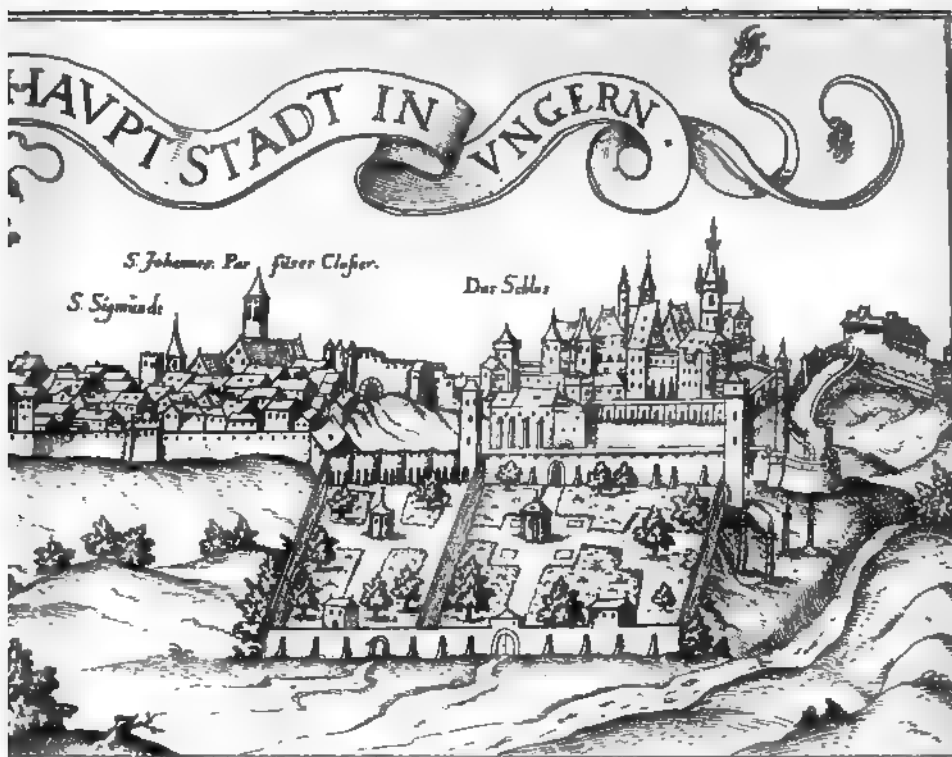 HAVPT STADT IN VNGERN.
S. Johannes. Par füser Closter.
S. Sigmünds
Das Schlos